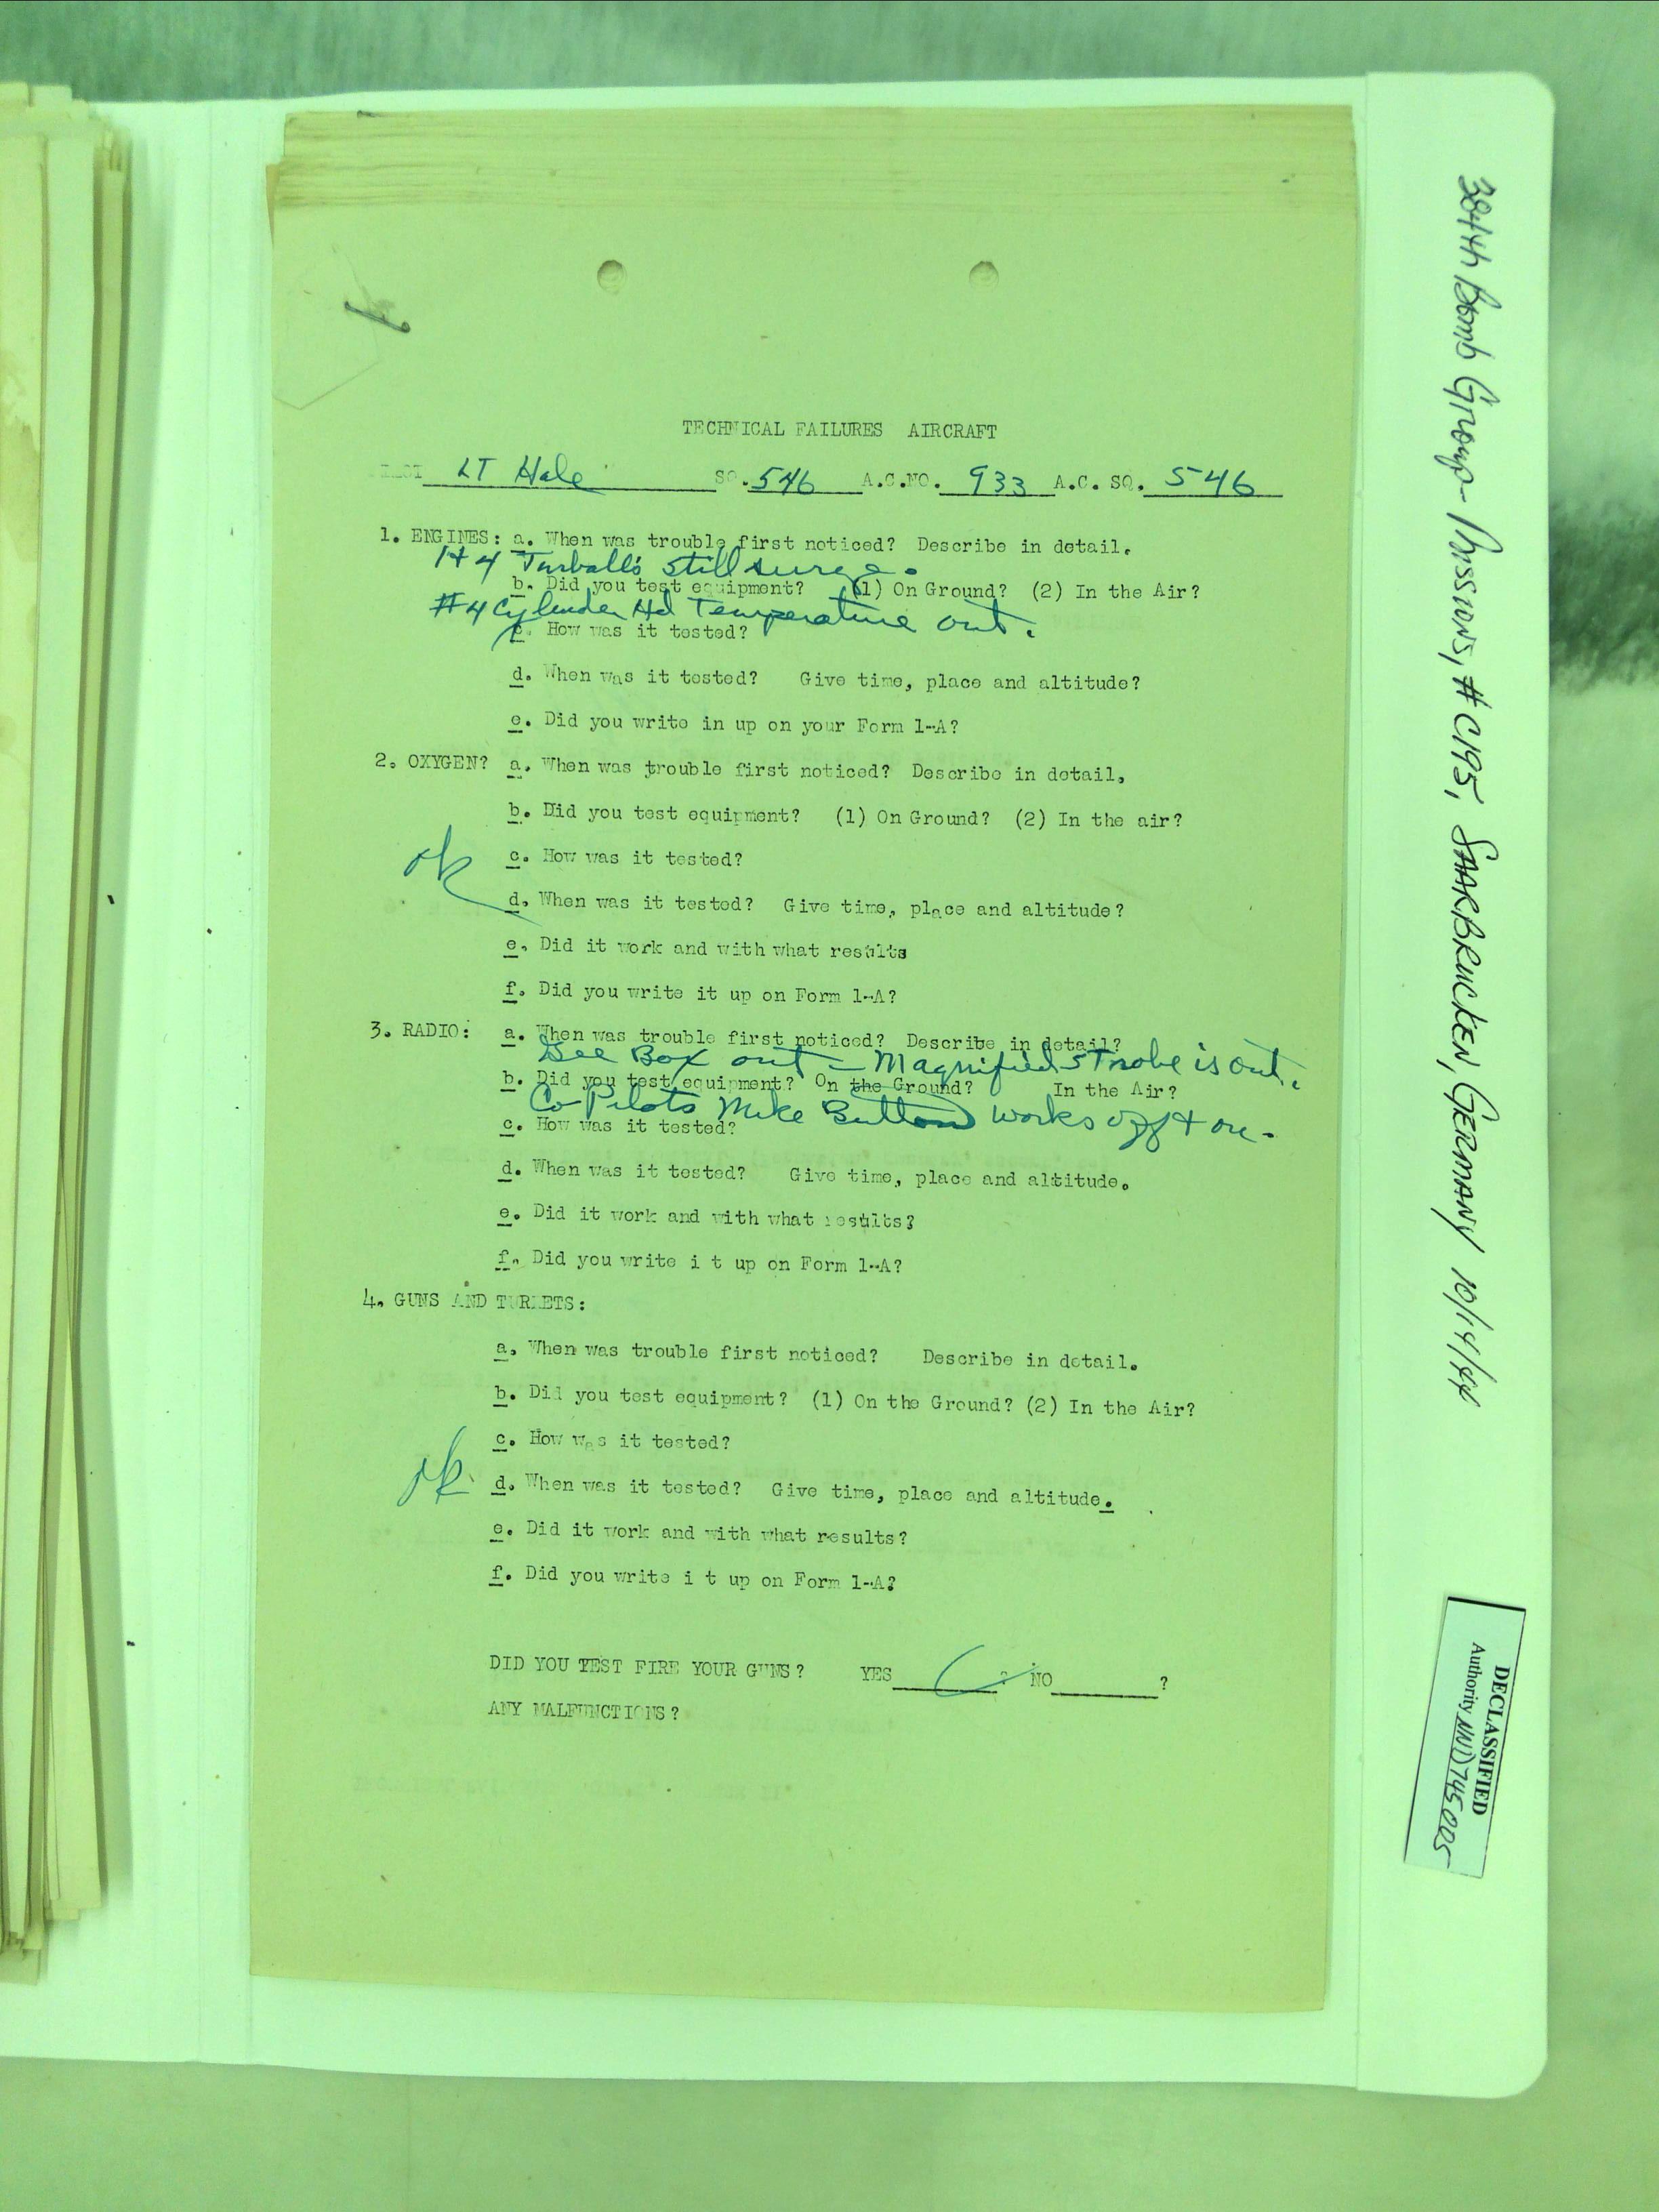 TECHNICAL FAILURES AIRCRAFT
LT Hale SQ. 546 A.C.NO. 933 A.C. SQ. 546
1. ENGINES: a. When was trouble first noticed? Describe in detail.
1+4 still surge.
b. Did you test equipment? (1) On Ground? (2) In the Air?
#4 Cylinder Hd Temperature out.
c. How was it tested?
d. When was it tested? Give time, place and altitude?
e. Did you write in up on your Form 1-A?
2. OXYGEN? a. When was trouble first noticed? Describe in detail,
b. Did you test equipment? (1) On Ground? (2) In the air?
ok
c. How was it tested?
d. When was it tested? Give time, place and altitude?
e. Did it work and with what results
f. Did you write it up on Form 1-A?
3. RADIO: a. When was trouble first noticed? Describe in detail?
Gee Box out - Magnified Strobe is out.
b. Did you test equipment? On the Ground? In the Air?
Co-Pilots Mike Button works off + on.
c. How was it tested?
d. When was it tested? Give time, place and altitude.
e. Did it work and with what results?
f. Did you write i t up on Form 1-A?
4. GUNS AND TURRETS:
a. When was trouble first noticed? Describe in detail.
b. Did you test equipment? (1) On the Ground? (2) In the Air?
c. How was it tested?
ok
d. When was it tested? Give time, place and altitude.
e. Did it work and with what results?
f. Did you write i t up on Form 1-A?
DID YOU TEST FIRE YOUR GUNS? YES ? NO ?
ANY MALFUNCTIONS?
384th Bomb Group - Missions, # C195, SAARBRUCKEN, GERMANY 10/14/44
DECLASSIFIED
Authority NND745005